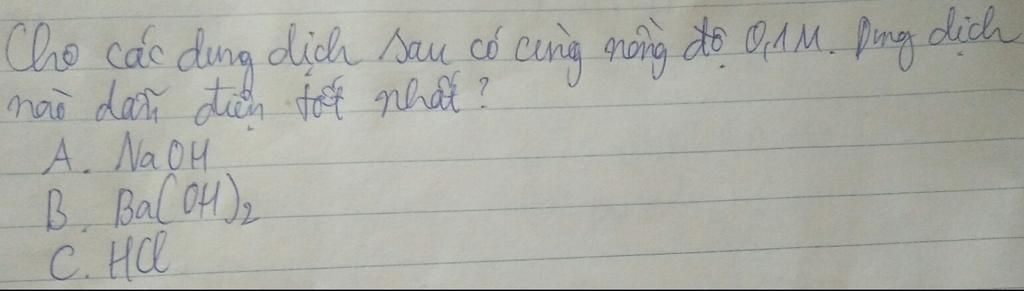 Cho các dung dịch sau có cùng nồng độ 0,1M. Dung dịch
nào dẫn điện tốt nhất?
A. NaOH
B. Ba(OH)₂
C. HCl